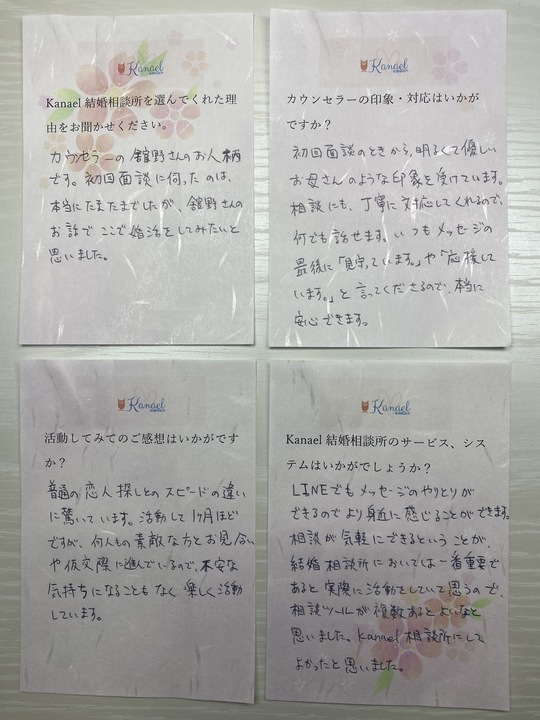 Kanael
Kanael 結婚相談所を選んでくれた理
由をお聞かせください。
カウンセラーの舘野さんのお人柄
です。初回面談に伺ったのは、
本当にたまたまでしたが、舘野さんの
お話でここで婚活をしてみたいと
思いました。
Kanael
カウンセラーの印象・対応はいかが
ですか？
初回面談のときから、明るくて優しい
お母さんのような印象を受けています。
相談にも、丁寧に対応してくれるので、
何でも話せます。いつもメッセージの
最後に「見守っています。」や「応援して
います。」と言ってくださるので、本当に
安心できます。
Kanael
活動してみてのご感想はいかがです
か？
普通の恋人探しとのスピードの違い
に驚いています。活動して1ヶ月ほど
ですが、何人もの素敵な方とお見合い
や仮交際に進んでいるので、不安な
気持ちになることもなく楽しく活動
しています。
Kanael
Kanael 結婚相談所のサービス、シス
テムはいかがでしょうか？
LINEでもメッセージのやりとりが
できるのでより身近に感じることができます。
相談が気軽にできるということが、
結婚相談所においては一番重要で
あると実際に活動をしていて思うので、
相談ツールが複数あるとよいなと
思いました。Kanael相談所にして
よかったと思いました。